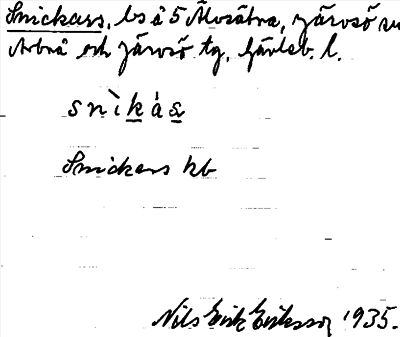 Snickars, bs å 5 Älvsätra, Järvsö sn
Arbrå och Järvsö tg, Gävleb. l.
snìkás
Snickars kb
Nils Erik Eriksson 1935.